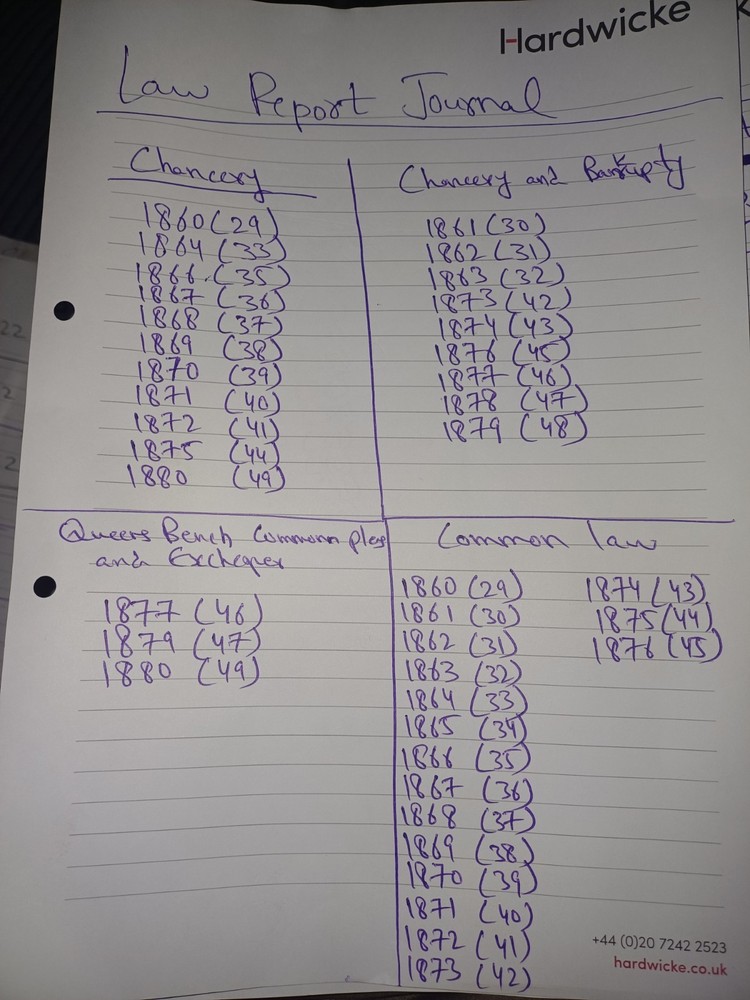 Hardwicke
Law Report Journal
Chancery
1860 (29)
1864 (33)
1866 (35)
1867 (36)
1868 (37)
1869 (38)
1870 (39)
1871 (40)
1872 (41)
1875 (44)
1880 (49)
Chancery and Bankrupty
1861 (30)
1862 (31)
1863 (32)
1873 (42)
1874 (43)
1876 (45)
1877 (46)
1878 (47)
1879 (48)
Queens Bench Common pleas
and Exchequer
1877 (46)
1879 (47)
1880 (49)
Common law
1860 (29)
1861 (30)
1862 (31)
1863 (32)
1864 (33)
1865 (34)
1866 (35)
1867 (36)
1868 (37)
1869 (38)
1870 (39)
1871 (40)
1872 (41)
1873 (42)
1874 (43)
1875 (44)
1876 (45)
+44 (0)20 7242 2523
hardwicke.co.uk